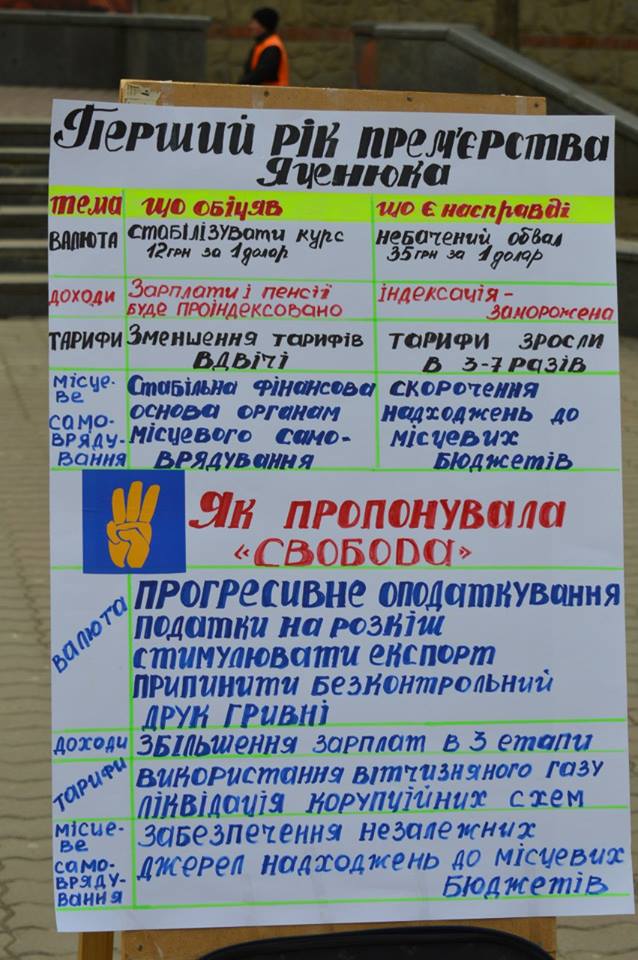 Перший рік прем'єрства
Яценюка
тема що обіцяв що є насправді
валюта стабілізувати курс 12грн за 1 долар небачений обвал 35грн за 1 долар
доходи Зарплати і пенсії буде проіндексовано індексація - заморожена
тарифи Зменшення тарифів вдвічі тарифи зросли в 3-7 разів
місце-
ве
само-
вряду-
вання
Стабільна фінансова
основа органам
місцевого само-
врядування
скорочення
надходжень до
місцевих
бюджетів
Як пропонувала
«СВОБОДА»
валюта
прогресивне оподаткування
податки на розкіш
стимулювати експорт
припинити безконтрольний
друк гривні
доходи збільшення зарплат в 3 етапи
тарифи
використання вітчизняного газу
ліквідація корупційних схем
місце-
ве
само-
вряду-
вання
забезпечення незалежних
джерел надходжень до місцевих
бюджетів